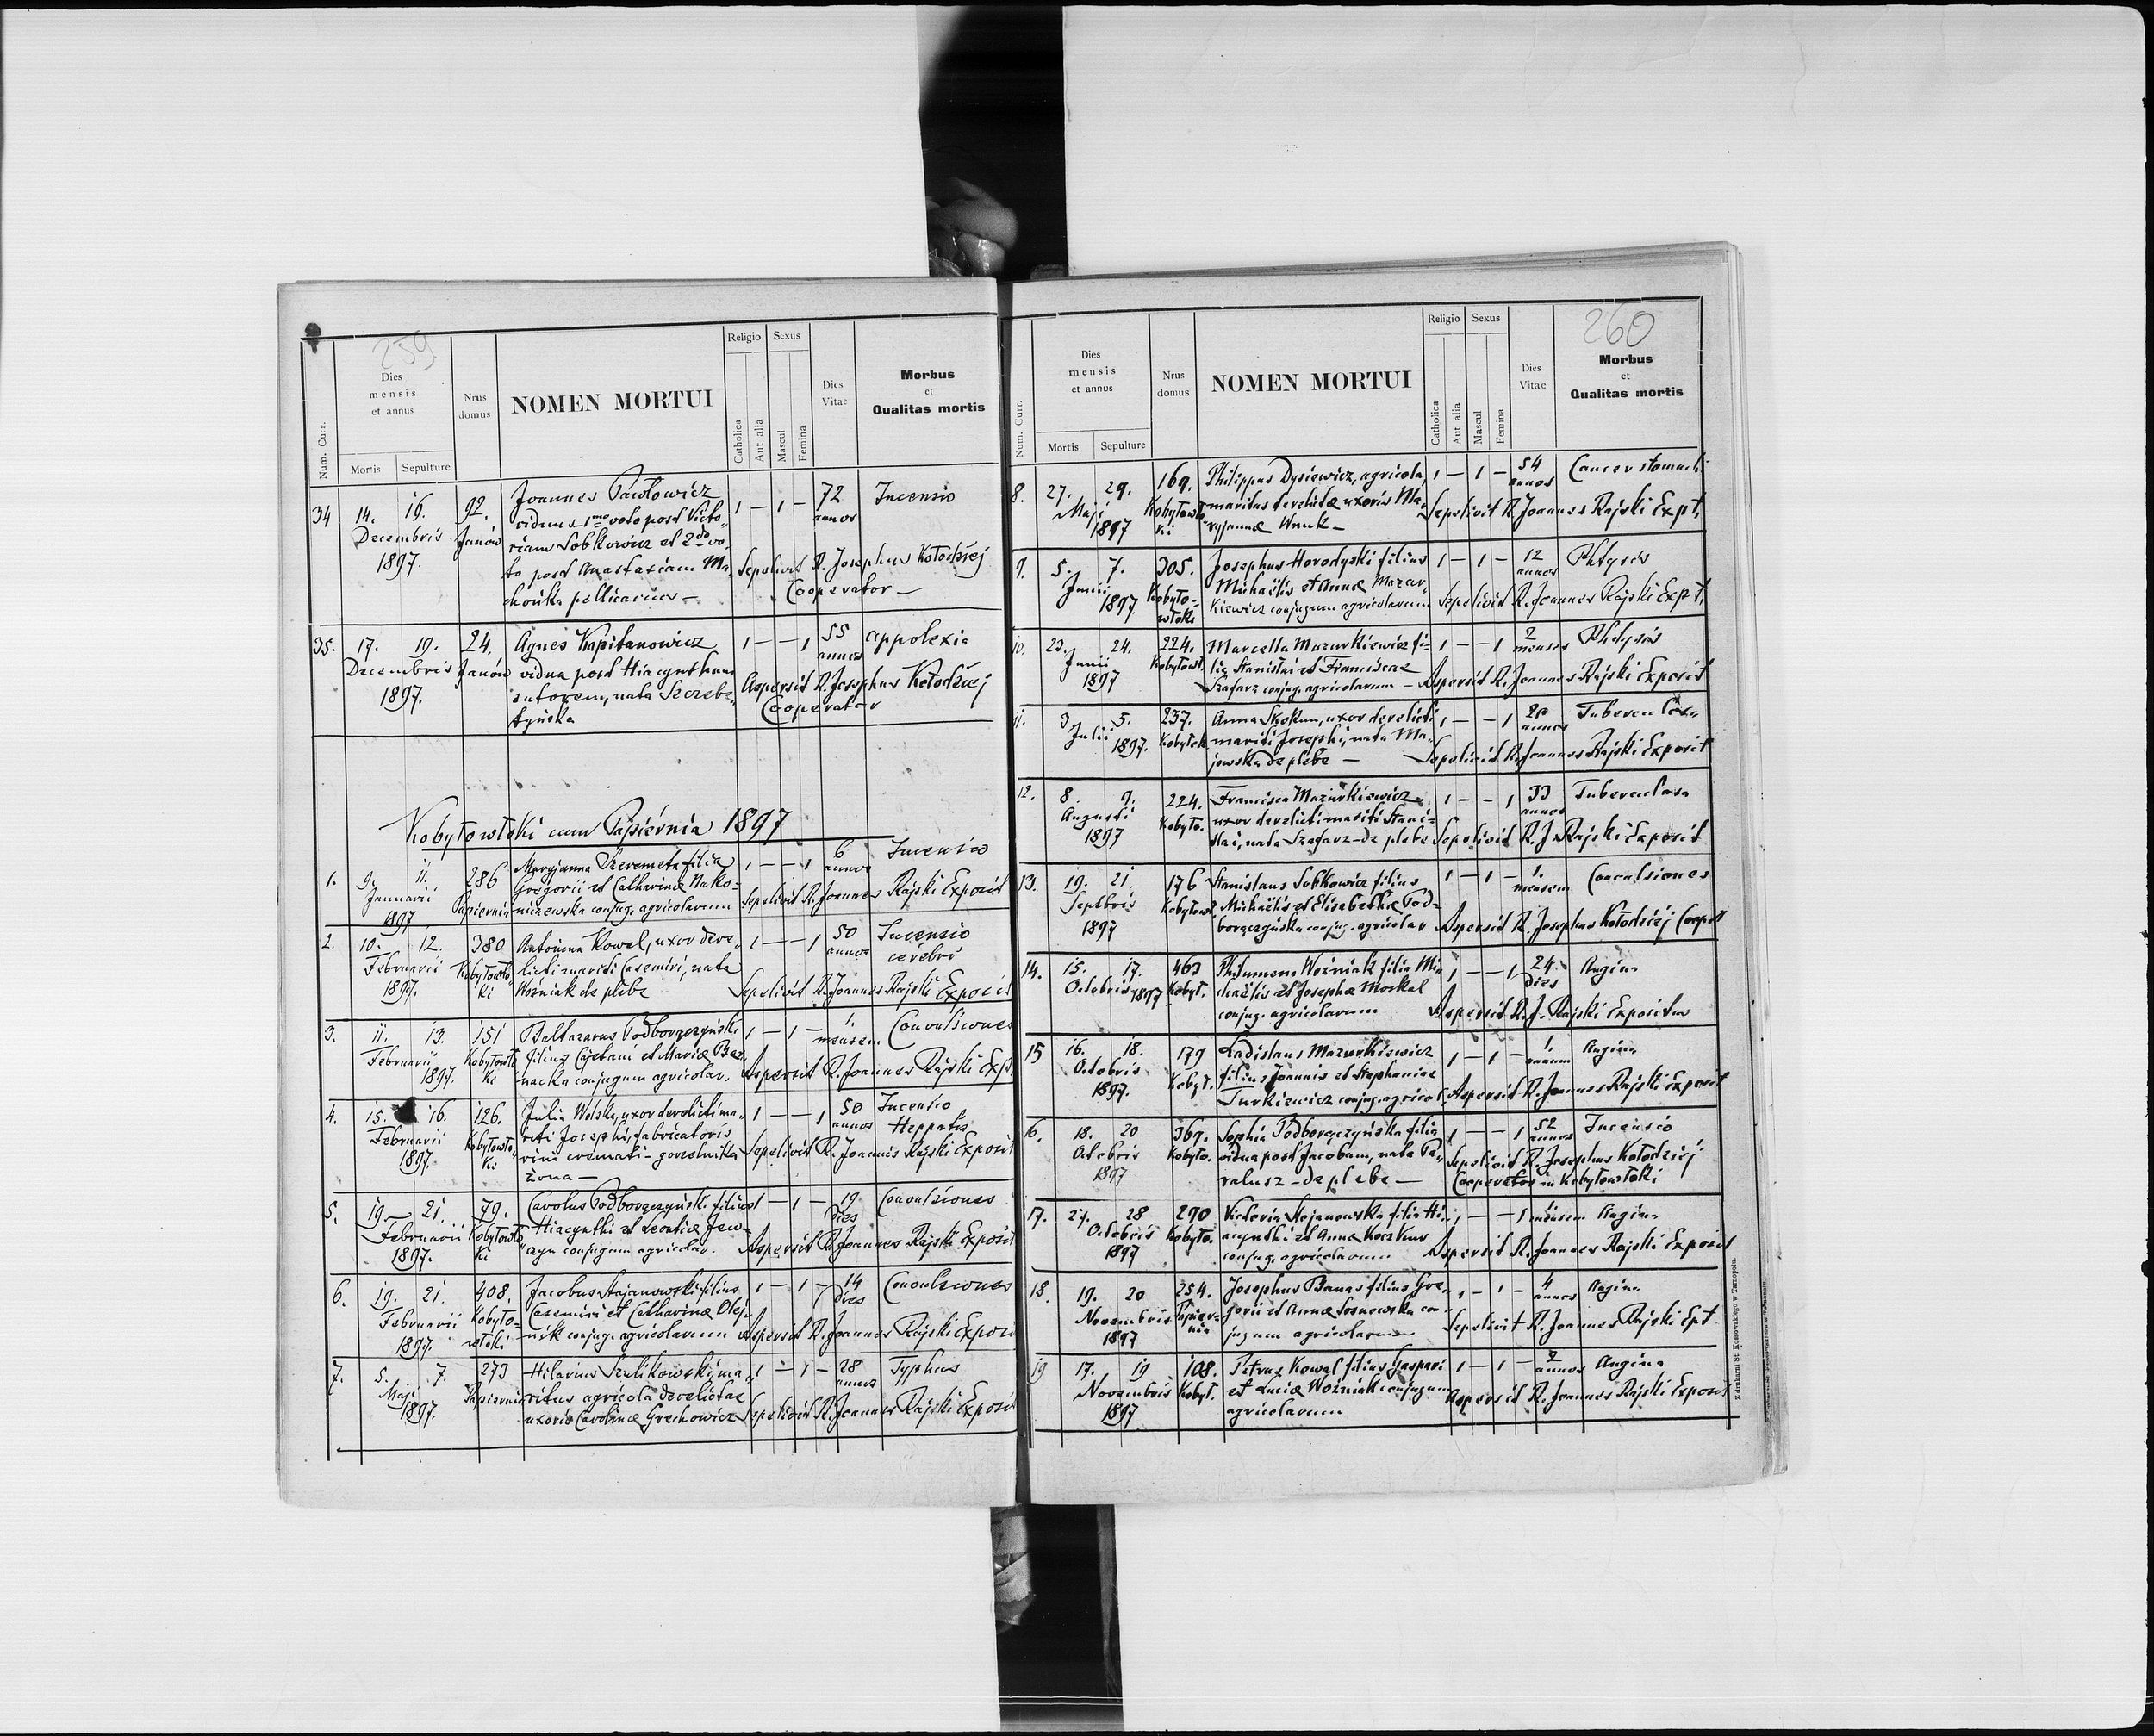 259
Num. Curr.
Dies mensis et annus
Mortis Sepulture
Nrus domus
NOMEN MORTUI
Religio
Catholica Aut alia
Sexus
Mascul Femina
Dies Vitae
Morbus et Qualitas mortis
34 14. 16. 92. Joannes Pawłowicz 1 — 1 — 72 Incensio
Decembris Janów viduus 1mo voto post Victo„ annos
1897. riam Sobkowicz et 2do vo„
to post Anastasiam Ma„ Sepelivit R. Josephus Kołodziej
chońka pellicarius — Cooperator —
35. 17. 19. 24. Agnes Kapitanowicz 1 — — 1 55 appolexia
Decembris Janów vidua post Hiacynthum annos
1897. sutorem, nata Szczebe„ Aspersit R. Josephus Kołodziej
tyńska Cooperator
Kobyłowłoki cum Papiernia 1897
1. 9. 11. 286 Maryanna Szeremeta filia 1 — — 1 6 Incensio
Januarii Papiernia Gregorii et Catharinæ Nako= annos
1897 niczewska conjug. agricolarum Sepelivit R. Joannes Rajski Exposit
2. 10. 12. 380 Antonina Kowal, uxor dere„ 1 — — 1 50 Incensio
Februarii Kobyłowło„ licti mariti Casemiri, nata annos cerebri
1897. ki Woźniak de plebe Sepelivit R. Joannes Rajski Exposit
3. 11. 13. 151 Baltazarus Podborączyński 1 — 1 — 1. Convulsiones
Februarii Kobyłowło filius Cajetani et Mariæ Ber mensem
1897. ki nacka conjugum agricolar. Aspersit R. Joannes Rajski Exp.
4. 15. 16. 126. Julia Wolska, uxor derelicti ma„ 1 — — 1 50 Incensio
Februarii Kobyłowło„ riti Josephi, fabricatoris annos Heppatis
1897. ki vini cremati - gorzelnika Sepelivit R. Joannes Rajski Exposit
żona —
5. 19. — 21. 79. Carolus Podborączyński filius 1 — 1 — 19 Convulsiones
Februarii Kobyłowło„ Hiacynthi et Leontiæ Jew= dies
1897. ki conjugum agricolar. Aspersit R. Joannes Rajski Exposit
6. 19. 21. 408. Jacobus Stajanowski filius 1 — 1 — 14 Convulsiones
Februarii Kobyło= Casemiri et Catharinæ Olej„ dies
1897. włoki nik conjug. agricolarum Aspersit R. Joannes Rajski Exposi
7. 5. 7. 273 Hilarius Szulikowski, ma„ 1 — 1 — 28 Typhus
Maji Papiernia ritus agricola derelictae annos
1897. uxoris Carolinæ Grechowicz Sepelivit R. Joannes Rajski Exposit
260
Num. Curr.
Dies mensis et annus
Mortis Sepulture
Nrus domus
NOMEN MORTUI
Religio
Catholica Aut alia
Sexus
Mascul Femina
Dies Vitae
Morbus et Qualitas mortis
8. 27. 29. 169. Philippus Dysiewicz, agricola, 1 — 1 — 54 Cancer stomachi
Maji Kobyłowło maritus derelictæ uxoris Ma„ annos
1897 ki ryannæ Wnuk — Sepelivit R. Joannes Rajski Expt.
9. 5. 7. 305. Josephus Horodyski filius 1 — 1 — 12 Phtysis
Junii Kobyło= Michaëlis et Annæ Mazur„ annos
1897. włoki kiewicz conjugum agricolarum Sepelivit R. Joannes Rajski Expt.
10. 23. 24. 224. Marcella Mazurkiewicz fi= 1 — — 1 2 Phtysis
Junii Kobyłowł. lia Stanislai et Franciscae menses
1897 Szafarz conjug. agricolarum — Aspersit R. Joannes Rajski Exposit
11. 3 5. 237. Anna Skokun, uxor derelicti 1 — — 1 annos Tuberculosa
Julii 1897. Kobyłowł. mariti Josephi, nata Ma„
jewska de plebe — Sepelivit R. Joannes Rajski Exposit
12. 8. 9. 224. Francisca Mazurkiewicz 1 — — 1 33 Tuberculosa
Augusti Kobyło. uxor derelicti mariti Stani= annos
1897 slai, nata Szafarz - de plebe Sepelivit R. J. Rajski Exposit
13. 19. 21. 176 Stanislaus Sobkowicz filius 1 — 1 — 1. Convulsiones
Septbris Kobyłowł. Michaëlis et Elisabethæ Pod= mensem
1897 borączyńska conjug. agricolar Aspersit R. Josephus Kołodziej Coopert
14. 15. 17. 463 Philumena Woźniak filia Mi 1 — — 1 24. Angina
Octobris 1897 Kobył. chaëlis et Josephæ Moskal dies
conjug. agricolarum Aspersit R. J. Rajski Expositus
15 16. 18. 179 Ladislaus Mazurkiewicz 1 — 1 — 1. Angina
Octobris Kobył. filius Joannis et Stephaniae annum
1897. Turkiewicz conjug. agricol. Aspersit R. Joannes Rajski Exposit
16. 18. 20 369. Sophia Podborączyńska filia 1 — — 1 52 Incensio
Octobris Kobyło. vidua post Jacobum, nata Pa„ annos
1897 ralusz - de plebe — Sepelivit R. Josephus Kołodziej
Cooperator in Kobyłowłoki
17. 27. 28 290 Victoria Stojanowska filia Hi„ 1 — — 1 1. mensem Angina
Octobris Kobyło. acynthi et Annæ Koczkur
1897 conjug. agricolarum Aspersit R. Joannes Rajski Exposit
18. 19. 20 254. Josephus Banas filius Gre„ 1 — 1 — 4 Angina
Novembris Papier= gorii et Annæ Sosnowska con„ annos
1897 nia jugum agricolarum Sepelivit R. Joannes Rajski Ept
19 17. 19 108. Petrus Kowal filius Gaspari 1 — 1 — 2 Angina
Novembris Kobył. et Luciæ Woźniak conjugum annos
1897 agricolarum Aspersit R. Joannes Rajski Exposit
Z drukarni St. Kossowskiego w Tarnopolu.